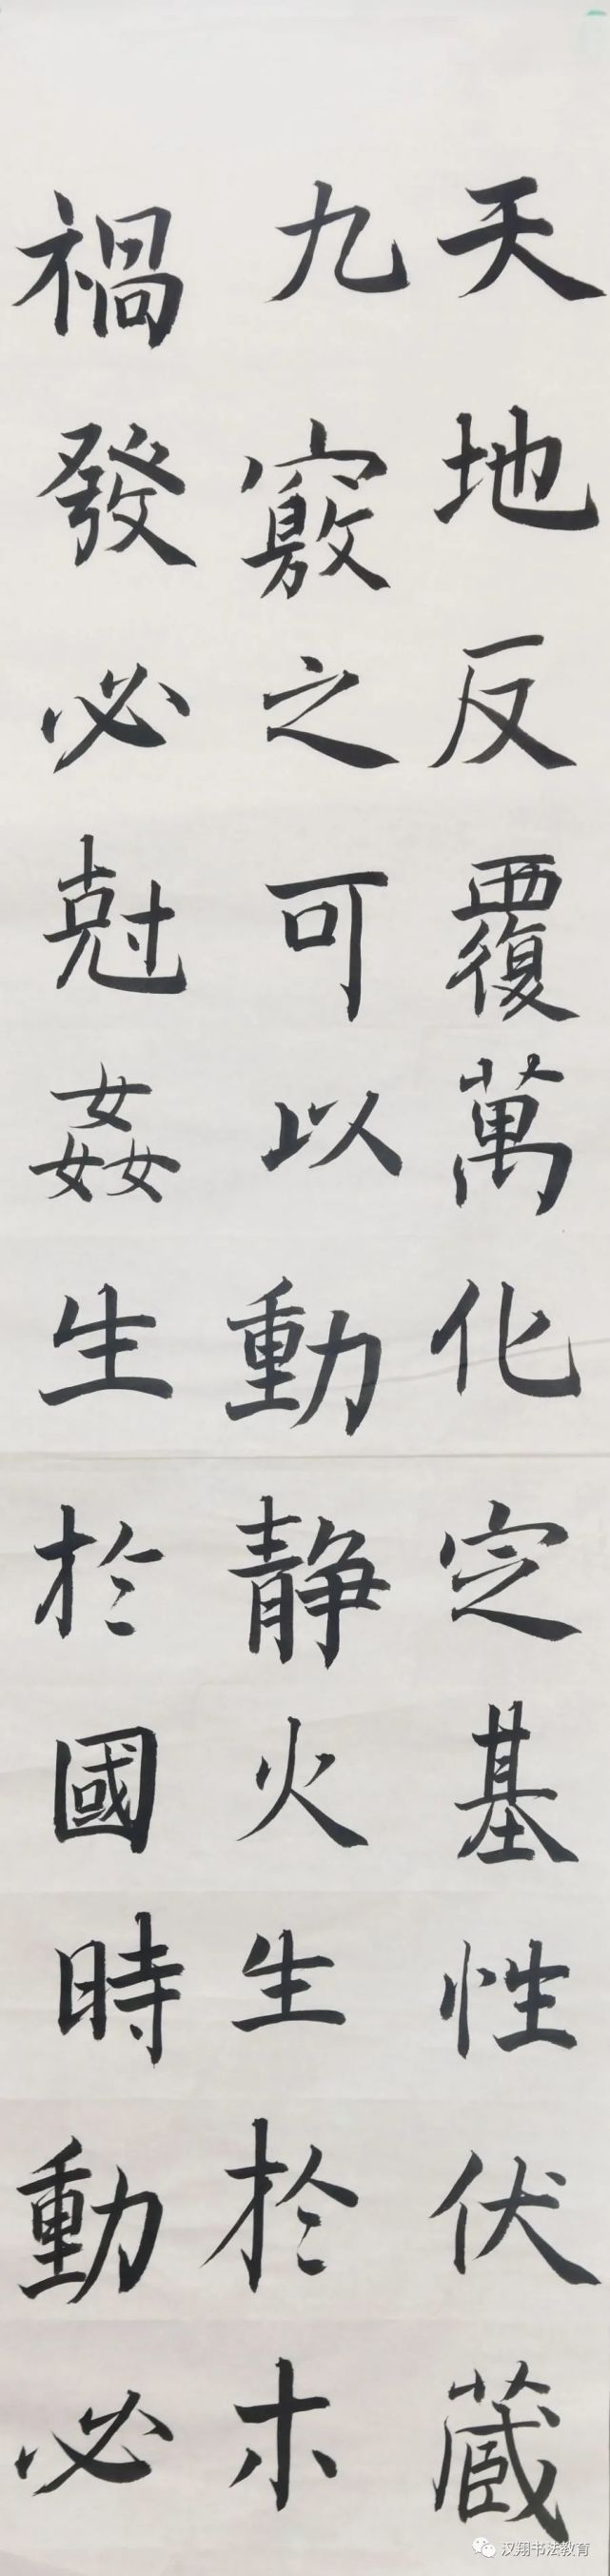 天地反覆萬化定基性伏藏
九竅之可以動静火生於木
禍發必尅姦生於國時動必
汉翔书法教育